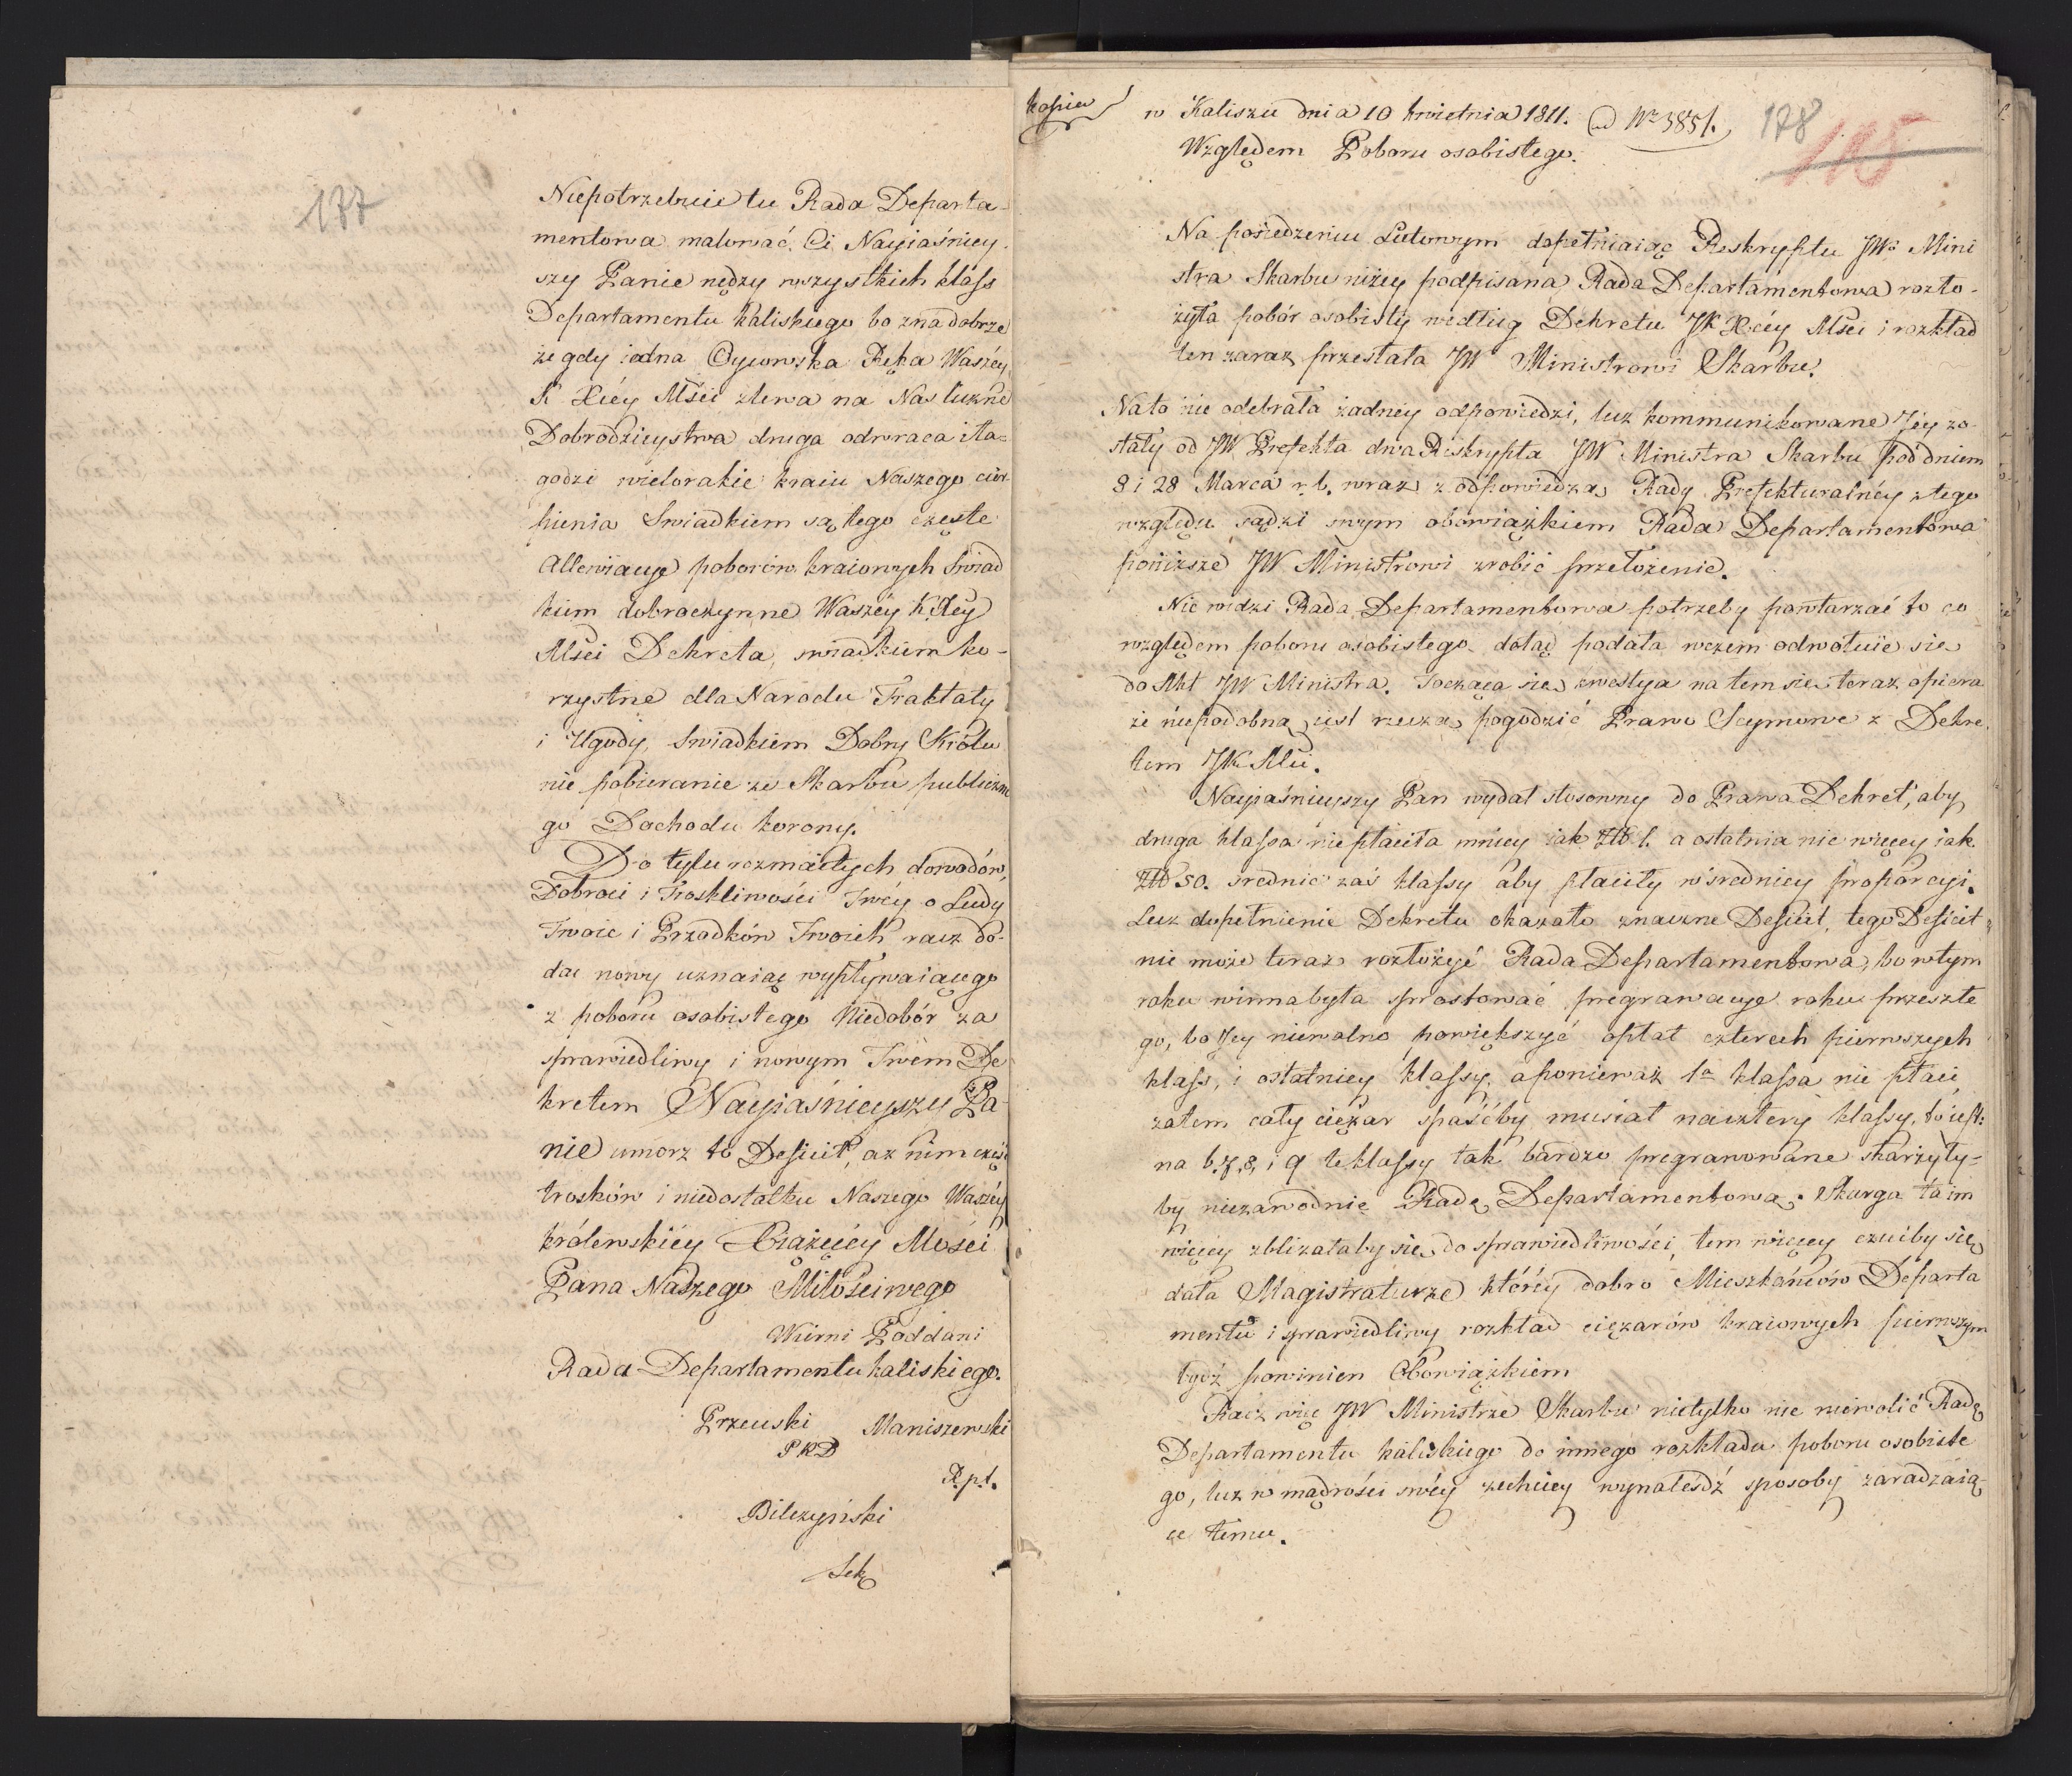 177
Niepotrzebnie tu Rada Departa-
mentowa malować Ci Nayiaśniey-
szy Panie nędzy wszystkich klass
Departamentu kaliskiego bo zna dobrze
że gdy iedna Oycowska Ręka Waszéy
K Xcéy Mści zlewa na Nas liczne
Dobrodzieystwa druga odwraca i ła-
godzi wielorakie kraiu Naszego cier-
pienia Swiadkiem są tego częste
Allewiacye poborów kraiowych Swiad
kiem dobroczynne Waszéy K. Xcéy
Mści Dekreta, swiadkiem ko-
rzystne dla Narodu Traktaty
i Ugody, Swiadkiem Dobry Królu
nie pobieranie ze Skarbu publiczne
go Dochodu korony.
Do tylu rozmaitych dowodów,
Dobroci i Troskliwości Twéy o Ludy
Twoie i Przodków Twoich racz do-
dać nowy uznaiąc wypływaiącego
z poboru osobistego Niedobór za
sprawiedliwy i nowym Twém De
kretem Nayiaśnieyszy Pa-
nie umorz to Deficit, a z nim część
trosków i niedostatku Naszego Waszéy
królewskiéy Xiążęcéy Mości
Pana Naszego Miłościwego
Wierni Poddani
Rada Departamentu kaliskiego.
Przeuski Maniszewski
P R D
R.pt.
Bilczyński
Sek
kopia
w Kaliszu dnia 10 kwietnia 1811. ad Nr 3851.
178
115
Względem Poboru osobistego.
Na posiedzeniu Lutowym dopełniaiąc Reskryptu JWo Mini
stra Skarbu niżey podpisana Rada Departamentowa rozło-
żyła pobór osobisty według Dekretu JK Xcéy Mści i rozkład
ten zaraz przesłała JW Ministrowi Skarbu.
Na to nie odebrała żadnéy odpowiedzi, lecz kommunikowane Jéy zo-
stały od JW Prefekta dwa Reskrypta JW Ministra Skarbu pod dniem
8 i 28 Marca r. b. wraz z odpowiedzą Rady Prefekturalnéy z tego
względu sądzi swym obowiązkiem Rada Departamentowa
poniższe JW Ministrowi zrobić przełożenie.
Nie widzi Rada Departamentowa potrzeby powtarzać to co
względem poboru osobistego dotąd podała wczem odwołuie się
do Akt JW Ministra. Tocząca się kwestya na tem się teraz opiera
że niepodobną iest rzeczą pogodzić Prawo Seymowe z Dekre-
tem JK Mci.
Nayiaśnieyszy Pan wydał stosowny do Prawa Dekret, aby
druga klassa nie płaciła mniey iak Złł 1. a ostatnia nie więcey iak
Złł 50. srednie zaś klassy aby płaciły w sredniey proporcyi.
Lecz dopełnienie Dekretu okazało znaczne Deficit, tego Deficit
nie może teraz rozłożyć Rada Departamentowa, bo w tym
roku winna była sprostować pregrawacye roku przeszłe
go, bo Jey niewolno powiększyć opłat czterech pierwszych
klass, i ostatniey klassy, a ponieważ 1a klassa nie płaci
zatem cały ciężar spaśćby musiał na cztery klassy, to iest:
na 6. 7. 8. i 9 te klassy tak bardzo pregrawowane skarżyły-
by niezawodnie Radę Departamentową. Skarga ta im
więcey zbliżałaby się do sprawiedliwości, tem więcey czućby się
dała Magistraturze któréy dobro Mieszkańców Departa
mentu i sprawiedliwy rozkład ciężarów kraiowych pierwszym
bydź powinien Obowiązkiem
Racz więc JW Ministrze Skarbu nietylko nie niewolić Radę
Departamentu kaliskiego do innego rozkładu poboru osobiste
go, lecz w mądrości swéy zechciey wynaleśdź sposoby zaradzaią-
ce temu.